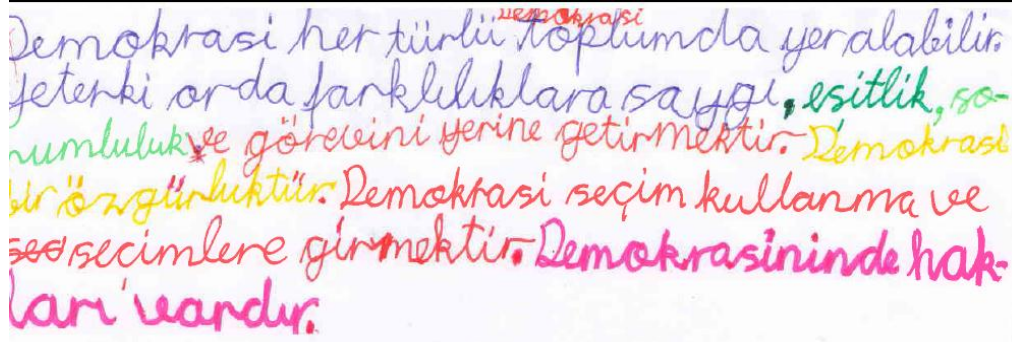 Demokrasi
Demokrasi her türlü toplumda yer alabilir.
Yeterki orda farklılıklara saygı, eşitlik, so-
rumluluk ve görevini yerine getirmektir. Demokrasi
bir özgürluktür. Demokrasi seçim kullanma ve
secimlere girmektir. Demokrasininde hak-
ları vardır.